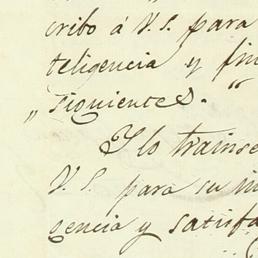 cribo á V.S. para
teligencia y fin
„ siguientes. “
Y lo trainsc
V.S. para su in
gencia y satisfa